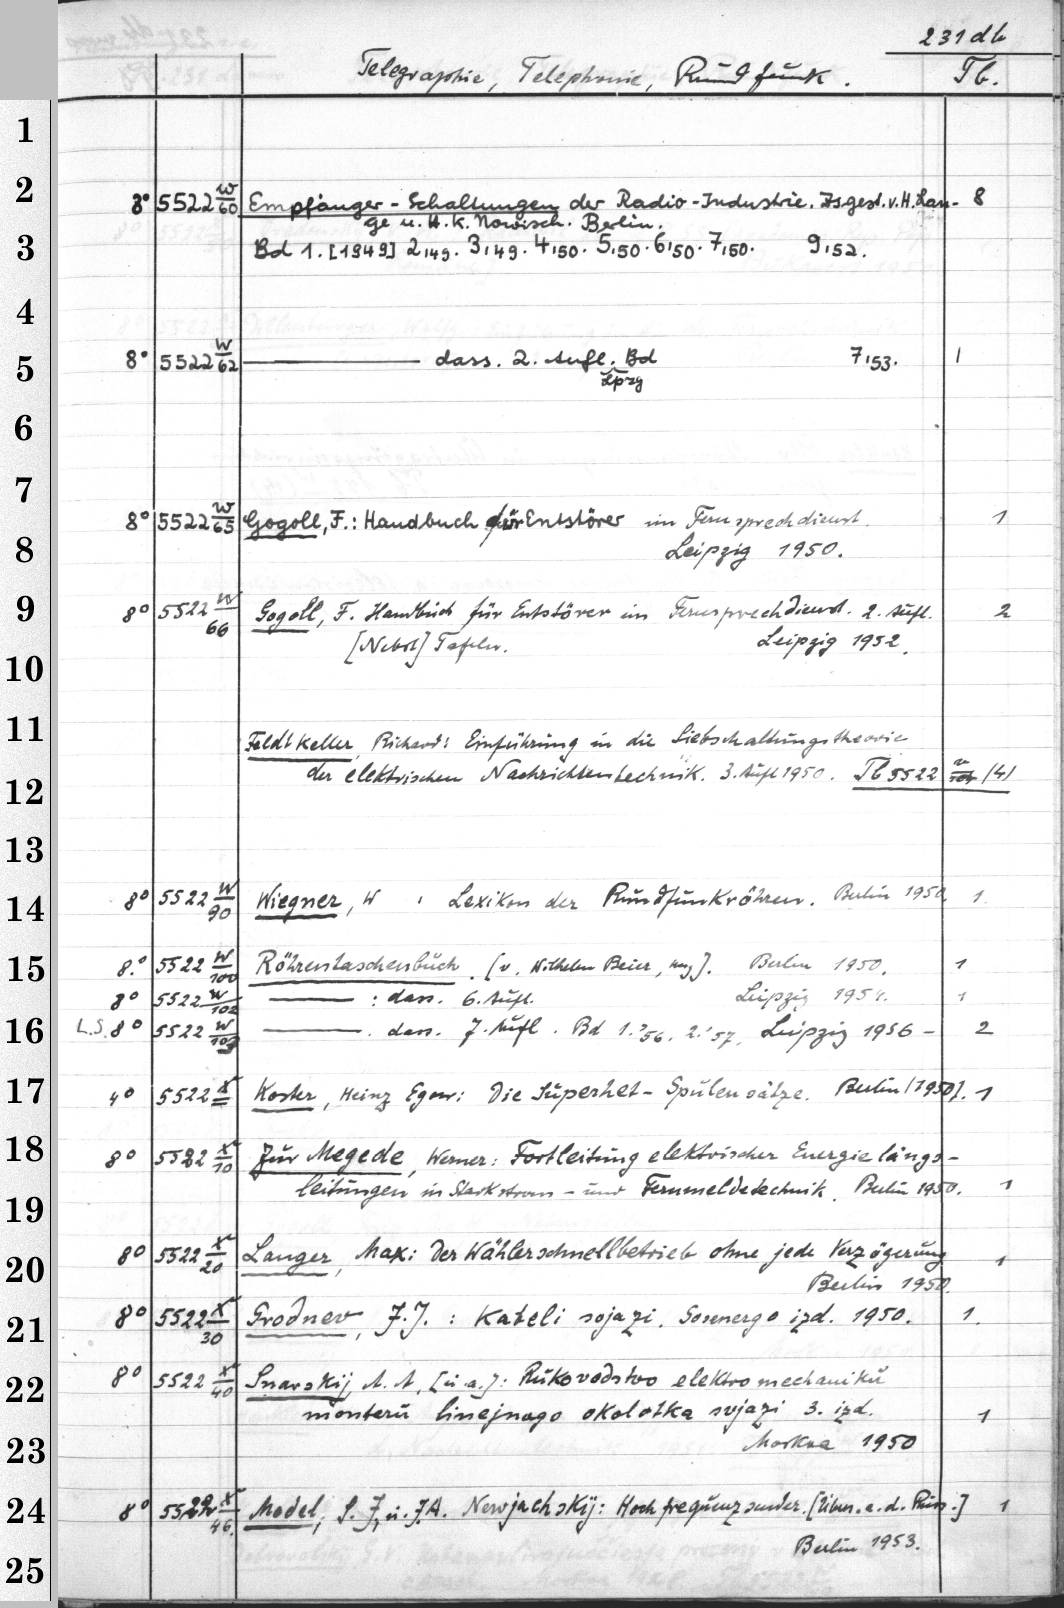 231 db
Telegraphie, Telephonie, Rundfunk. Tb.
1
2
8° 5522 W/60 Empfänger-Schaltungen der Radio-Industrie. Zsgest. v. H. Lan- 8
ge u. H. K. Nowisch. Berlin.
3
Bd 1. [1949] 2,49. 3,49. 4,50. 5,50. 6,50. 7,50. 9,52.
4
5
8° 5522 W/62 ——— dass. 2. Aufl. Bd 7,53. 1
Lpzg
6
7
8° 5522 W/65 Gogoll, F.: Handbuch für Entstörer im Fernsprechdienst. 1
8
Leipzig 1950.
9
8° 5522 W/66 Gogoll, F. Handbuch für Entstörer im Fernsprechdienst. 2. Aufl. 2
[Nebst] Tafeln. Leipzig 1952.
10
11
Feldtkeller, Richard: Einführung in die Siebschaltungstheorie
der elektrischen Nachrichtentechnik. 3. Aufl 1950. Tb 5522 (4)
12
13
14
8° 5522 W/90 Wiegner, W : Lexikon der Rundfunkröhren. Berlin 1950. 1.
15
8.° 5522 W/100 Röhrentaschenbuch. [v. Wilhelm Beier, Hrsg]. Berlin 1950. 1
8° 5522 W/102 ——— : dass. 6. Aufl. Leipzig 1954. 1
16
L.S. 8° 5522 W/103 ———. dass. 7. Aufl. Bd 1.'56. 2.'57. Leipzig 1956 - 2
17
4° 5522 X Koster, Heinz Egon: Die Superhet-Spulensätze. Berlin (1950). 1
18
8° 5522 X/10 Zur Megede, Werner: Fortleitung elektrischer Energie längs-
leitungen in Starkstrom- und Fernmeldetechnik. Berlin 1950. 1
19
20
8° 5522 X/20 Langer, Max: Der Wählerschnellbetrieb ohne jede Verzögerung 1
Berlin 1950.
21
8° 5522 X/30 Grodnev, J. J. : Kabeli svjazi. Gosenergo izd. 1950. 1.
22
8° 5522 X/40 Snarskij, A. A. [u. a.]: Rukovodstvo elektromechaniku
monteru linejnago okolotka svjazi 3. izd. 1
23
Moskva 1950
24
8° 5522 X/46. Model, S. J. u. J. A. Newjachskij: Hochfrequenzsender. [Übers. a. d. Russ.] 1
25
Berlin 1953.